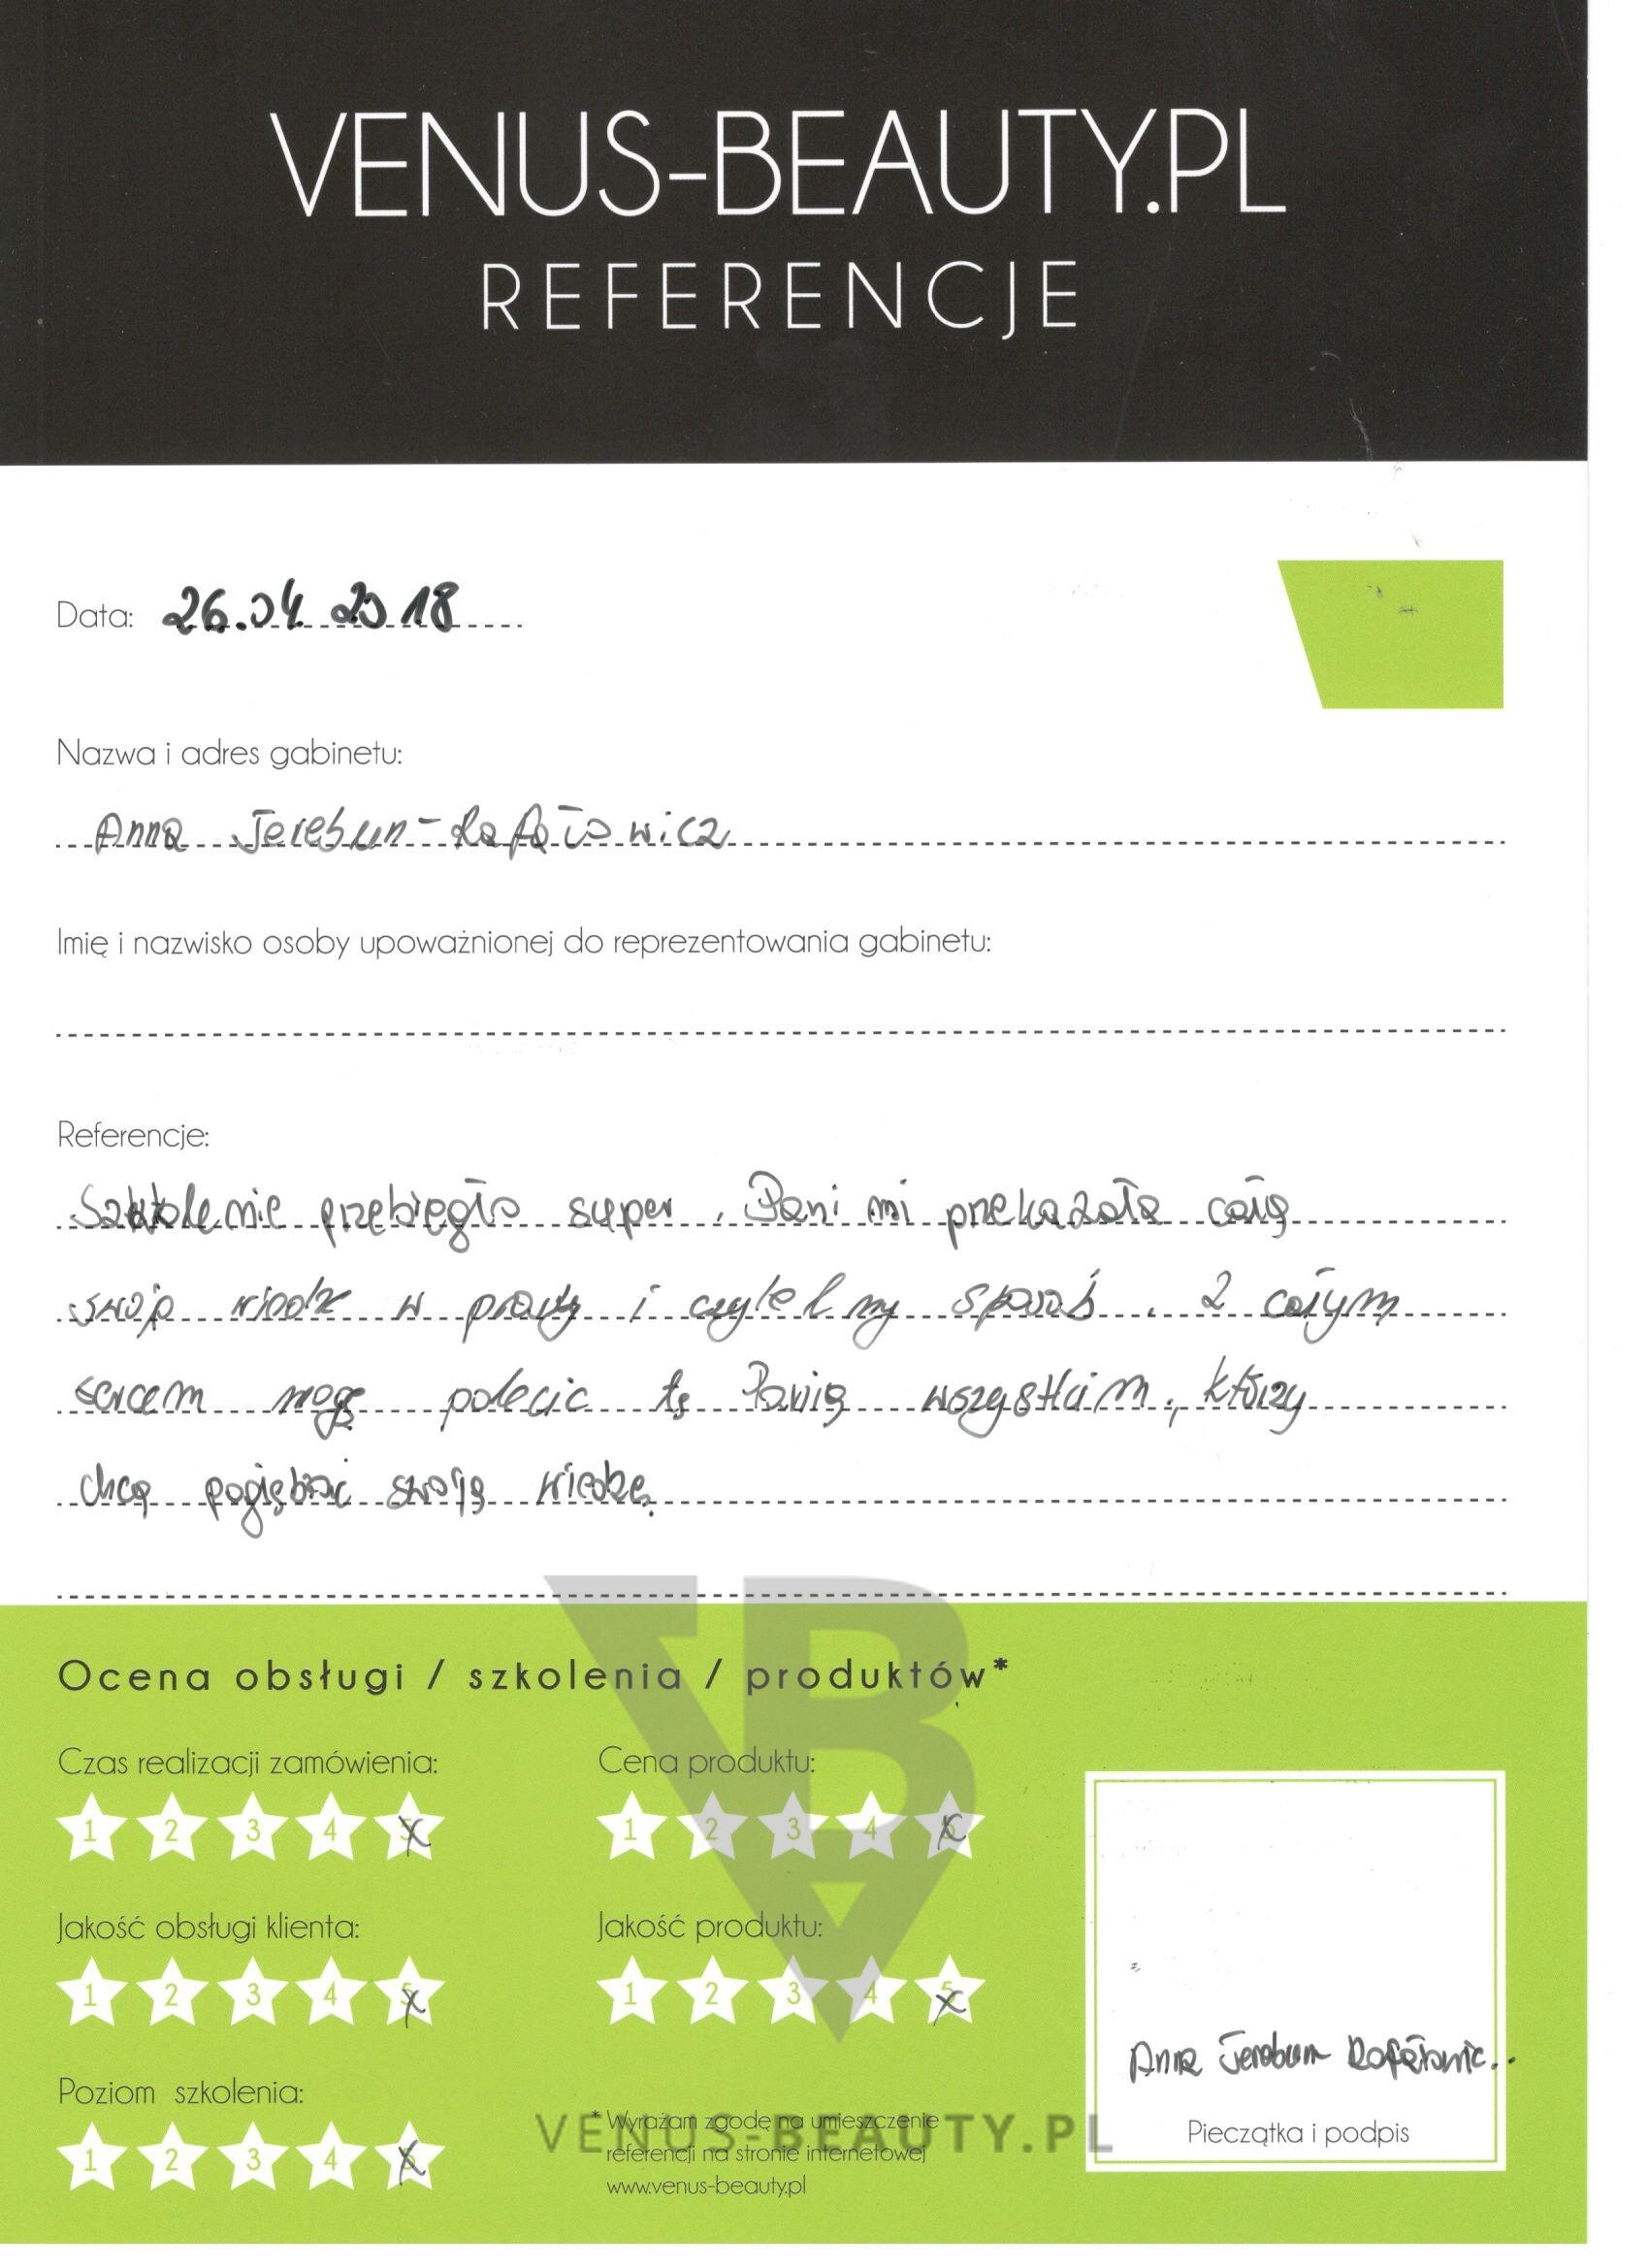 VENUS-BEAUTY.PL
REFERENCJE
Data: 26.04.2018
Nazwa i adres gabinetu:
Anna Jerebun-Rafałowicz
Imię i nazwisko osoby upoważnionej do reprezentowania gabinetu:
Referencje:
Szkolenie przebiegło super. Pani mi przekazała całą
swoją wiedze w prosty i czytelny sposób. Z całym
sercem mogę polecic tę Panią wszystkim, którzy
chcą pogłębiać swoją wiedzę.
Ocena obsługi / szkolenia / produktów*
Czas realizacji zamówienia: Cena produktu:
1 2 3 4 5 1 2 3 4 5
Jakość obsługi klienta: Jakość produktu:
1 2 3 4 5 1 2 3 4 5
Anna Jerebun Rafałowic..
Poziom szkolenia:
1 2 3 4 5
* Wyrażam zgodę na umieszczenie
referencji na stronie internetowej
www.venus-beauty.pl
Pieczątka i podpis
VENUS-BEAUTY.PL